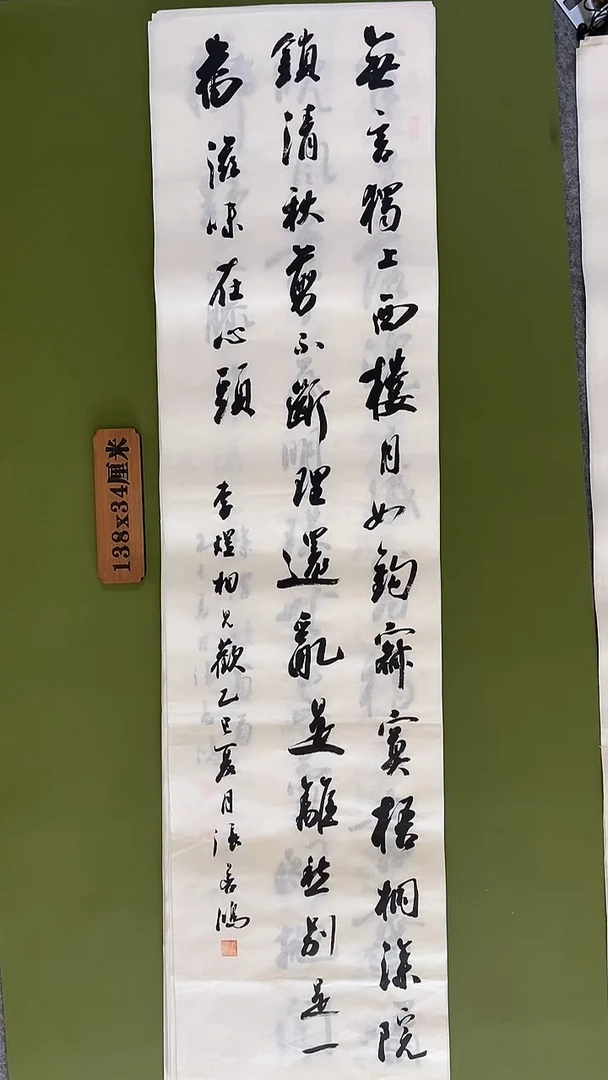 無言獨上西樓月如鈎寂寞梧桐深院
鎖清秋剪不斷理還亂是離愁別是一
番滋味在心頭 李煜相見歡乙巳夏月張鴻
138x34厘米